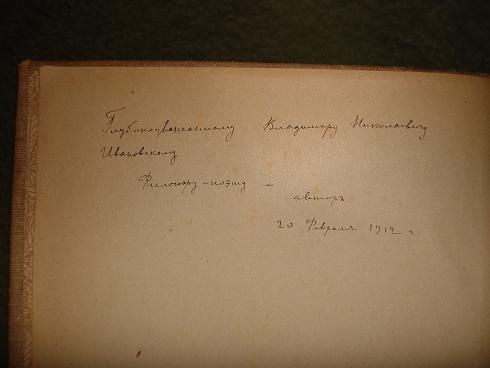 Глубокоуважаемому Владимиру Николаевичу
Ивановскому
Философу-поэту –
авторъ.
20 Февраля 1912 г.